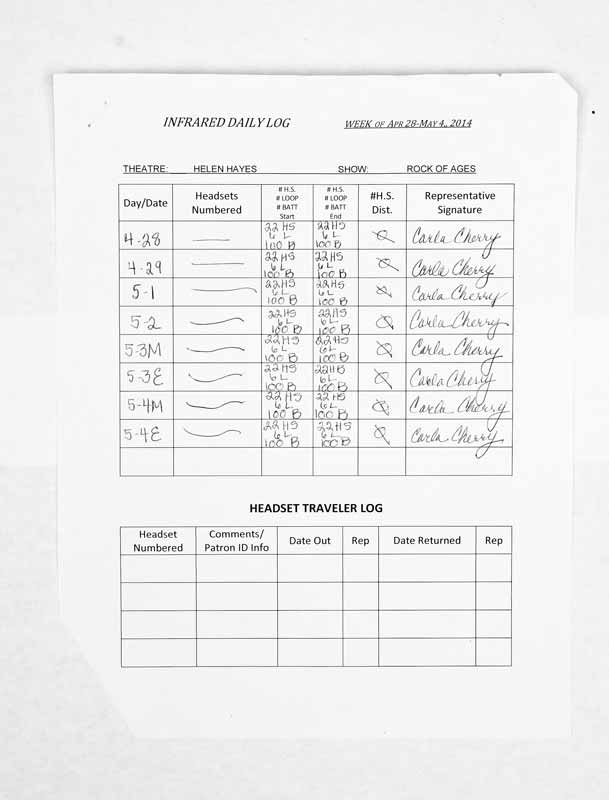 INFRARED DAILY LOG WEEK OF APR 28-MAY 4., 2014
THEATRE: HELEN HAYES SHOW: ROCK OF AGES
Day/Date Headsets Numbered # H.S. # LOOP # BATT Start # H.S. # LOOP # BATT End #H.S. Dist. Representative Signature
4-28 22 HS 6 L 100 B 22 HS 6 L 100 B Ø Carla Cherry
4-29 22 HS 6L 100 B 22 HS 6L 100 B Ø Carla Cherry
5-1 22 HS 6L 100 B 22 HS 6L 100 B Ø Carla Cherry
5-2 22 HS 6L 100 B 22 HS 6L 100 B Ø Carla Cherry
5-3M 22 HS 6L 100 B 22 HS 6L 100 B Ø Carla Cherry
5-3E 22 HS 6L 100 B 22 HS 6L 100 B Ø Carla Cherry
5-4M 22 HS 6L 100 B 22 HS 6L 100 B Ø Carla Cherry
5-4E 22 HS 6L 100 B 22 HS 6L 100 B Ø Carla Cherry
HEADSET TRAVELER LOG
Headset Numbered Comments/ Patron ID Info Date Out Rep Date Returned Rep